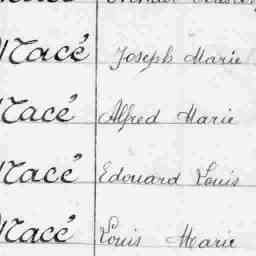 Macé Joseph Marie
Macé Alfred Marie
Macé Edouard Louis
Macé Louis Marie